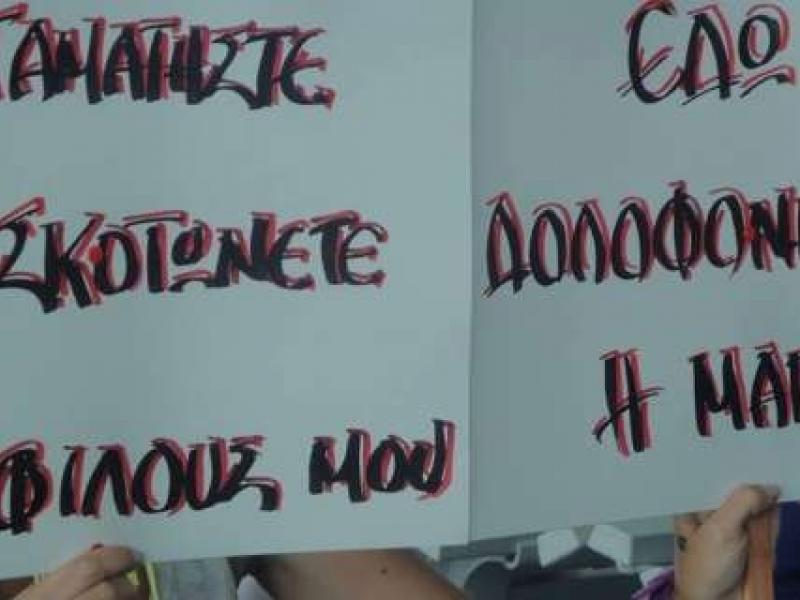 ΤΑΜΑΤΗΣΤΕ
ΣΚΟΤΩΝΕΤΕ
ΦΙΛΟΥΣ ΜΟΥ
ΕΔΩ
ΔΟΛΟΦΟΝΗ
Η